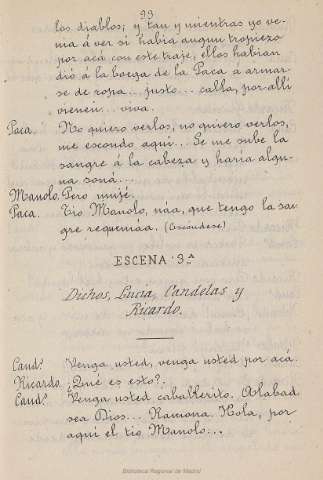 33
los diablos; y tau y mientras yo ve-
nia á ver si habia augun tropiezo
por acá con este traje, ellos habian
dio á la borga de la Paca á armar-
se de ropa... justo... calla, por allí
vienen... viva.
Paca. No quiero verlos, no quiero verlos,
me escondo aqui... Se me sube la
sangre á la cabeza y haria algu-
na soná...
Manolo. Pero mujé.
Paca. Tio Manolo, náa, que tengo la san-
gre requemáa. (Escóndese)
ESCENA 3.ª
Dichos, Lucia, Candelas y
Ricardo.
Cand.s Venga usted, venga usted por acá.
Ricardo. ¿Qué es esto?.
Cand.s Venga usted caballerito. Alabad
sea Dios... Ramona. Hola, por
aqui el tio Manolo...
Biblioteca Regional de Madrid